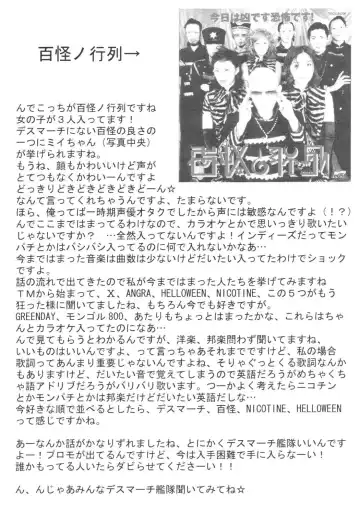 今日は凶です恐怖です!
百怪ノ行列→
百怪の行列
んでこっちが百怪ノ行列ですね
女の子が3人入ってます!
デスマーチにない百怪の良さの
一つにミイちゃん(写真中央)
が挙げられますね。
もうね、顔もかわいいけど声が
とてつもなくかわいーんですよ
どっきりどきどきどきどきどーん☆
なんて言ってくれちうんですよ、たまらないです。
ほら、俺ってば一時期声優オタクでしたから声には敏感なんですよ(!?)
んでここまではまってるわけなので、カラオケとかで思いっきり歌いたい
じゃないですか? …全然入ってないんですよ!インディーズだってモン
パチとかはバシバシ入ってるのに何で入れないかなあ…
今まではまった音楽は曲数は少ないけどだいたい入ってたわけでショック
ですよ。
話の流れで出てきたので私が今まではまった人たちを挙げてみますね
TMから始まって、X、ANGRA、HELLOWEEN、NICOTINE、この5つがもう
狂った様に聞いてましたね。もちろん今でも好きですが。
GREENDAY、モンゴル800、あたりもちょっとはまったかな、これらはちゃ
んとカラオケ入ってたのになあ…
んで見てもらうとわかるんですが、洋楽、邦楽問わず聞いてますね、
いいものはいいんですよ、って言っちゃあそれまでですけど、私の場合
歌詞ってあんまり重要じゃないんですよね、そりゃぐっとくる歌詞なんか
もありますけど、だいたい音で覚えてしまうので英語だろうがめちゃくち
ゃ語アドリブだろうがバリバリ歌います。つーかよく考えたらニコチン
とかモンパチとかは邦楽だけどだいたい英語だしな…
今好きな順で並べるとしたら、デスマーチ、百怪、NICOTINE、HELLOWEEN
って感じですかね。
あーなんか話がかなりずれましたね、とにかくデスマーチ艦隊いいんです
よー!プロモが出てるんですけど、今は入手困難で手に入らなーい!
誰かもってる人いたらダビらせてくださーい!!
ん、んじゃあみんなデスマーチ艦隊聞いてみてね☆